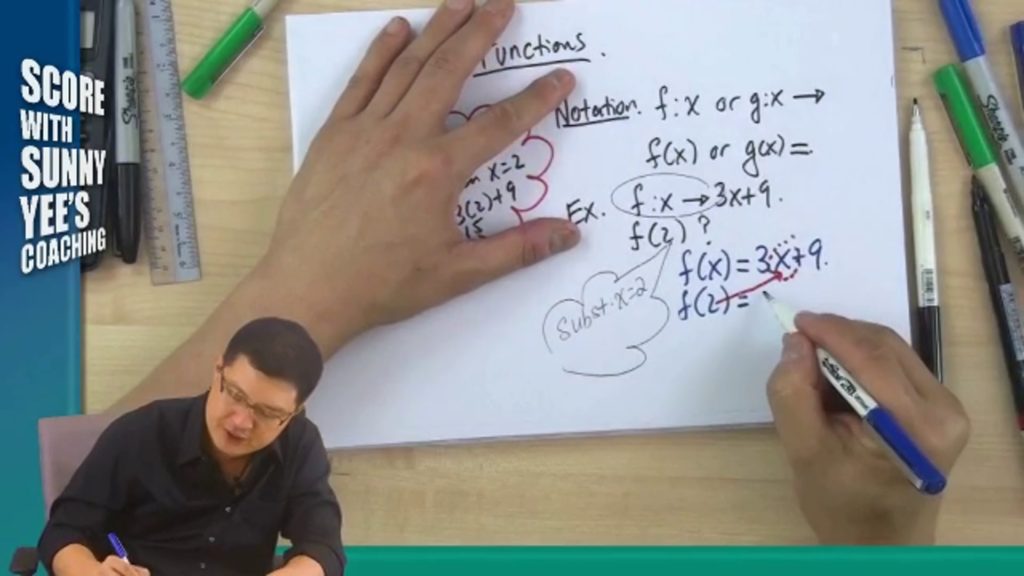 SCORE
WITH
SUNNY
YEE'S
COACHING
Functions.
Notation. f:x or g:x →
f(x) or g(x) =
x=2
3(2)+9
15
Ex. f:x → 3x+9.
f(2)?
f(x) = 3x+9.
f(2) =
Subst. x=2
Sharpie